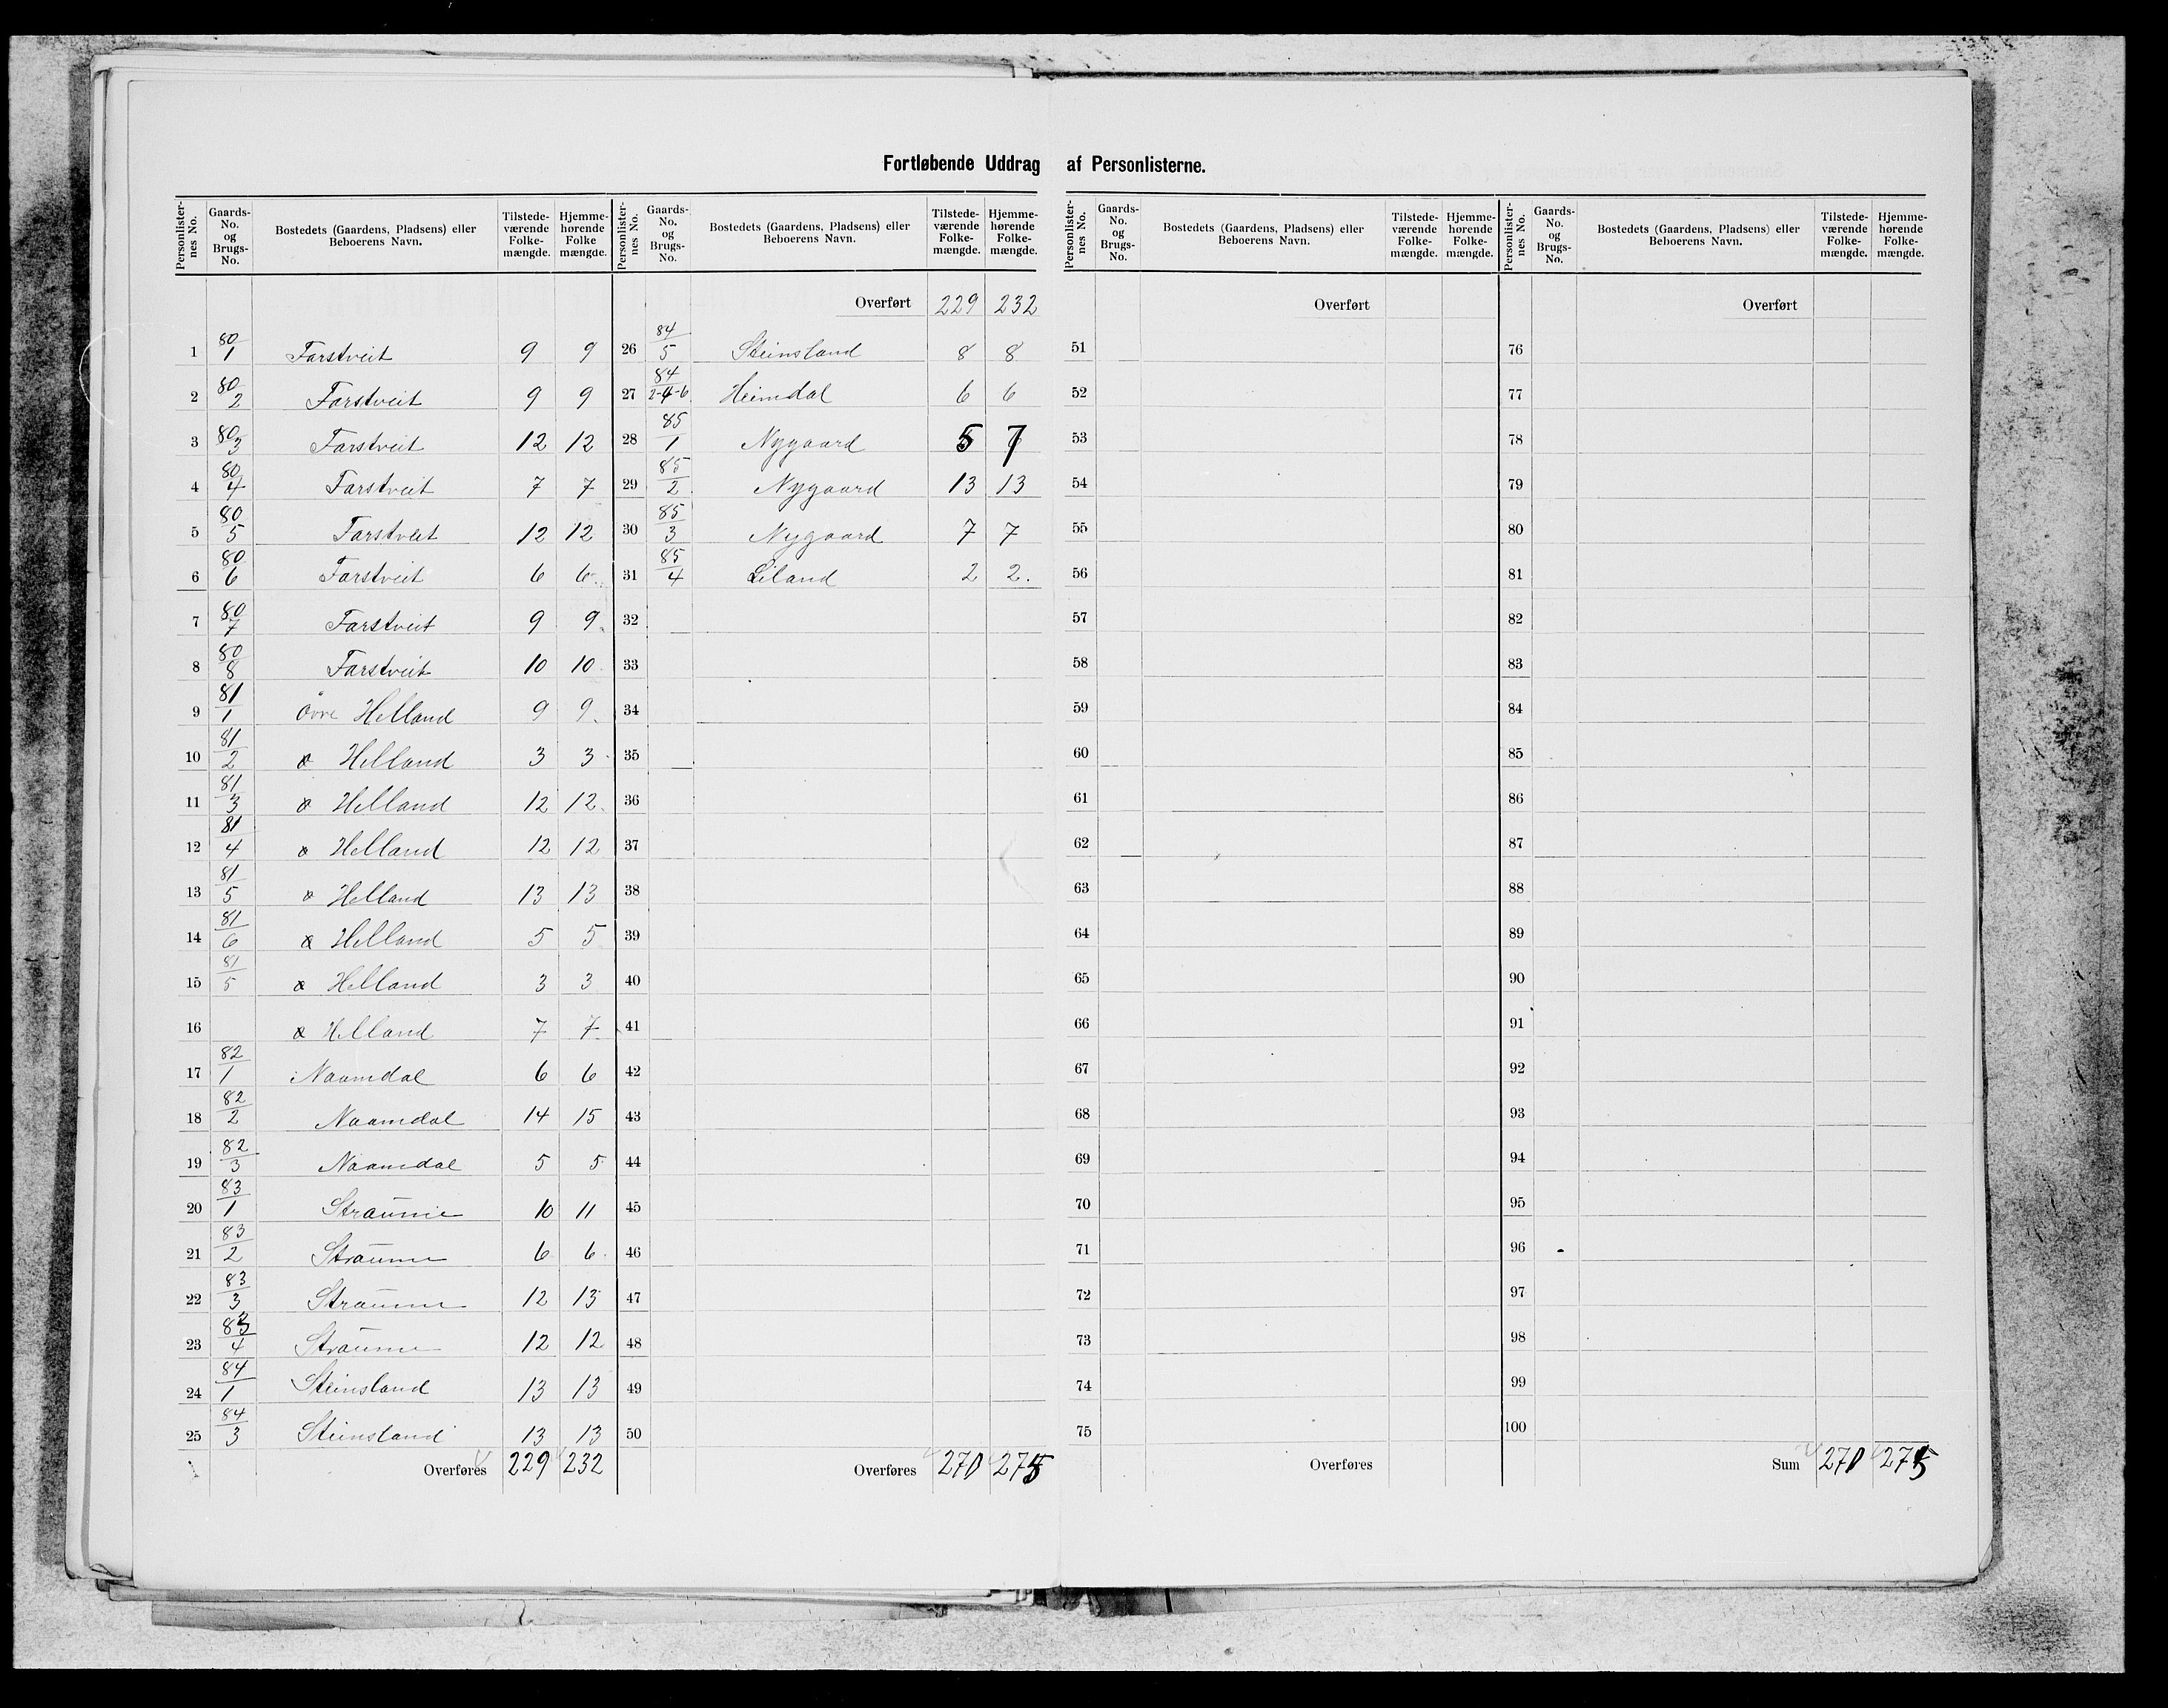 Fortløbende Uddrag af Personlisterne.
Personlister-nes No. Gaards-No. og Brugs-No. Bostedets (Gaardens, Pladsens) eller Beboerens Navn. Tilstede-værende Folke-mængde. Hjemme-hørende Folke mængde.
1 80/1 Farstveit 9 9
2 80/2 Farstveit 9 9
3 80/3 Farstveit 12 12
4 80/4 Farstveit 7 7
5 80/5 Farstveit 12 12
6 80/6 Farstveit 6 6
7 80/7 Farstveit 9 9
8 80/8 Farstveit 10 10
9 81/1 Övre Helland 9 9
10 81/2 Helland 3 3
11 81/3 Helland 12 12
12 81/4 Helland 12 12
13 81/5 Helland 13 13
14 81/6 Helland 5 5
15 81/5 Helland 3 3
16 Helland 7 7
17 82/1 Naamdal 6 6
18 82/2 Naamdal 14 15
19 82/3 Naamdal 5 5
20 83/1 Straume 10 11
21 83/2 Straume 6 6
22 83/3 Straume 12 13
23 83/4 Straume 12 12
24 84/1 Steinsland 13 13
25 84/3 Steinsland 13 13
Overføres 229 232
Personlister-nes No. Gaards-No. og Brugs-No. Bostedets (Gaardens, Pladsens) eller Beboerens Navn. Tilstede-værende Folke-mængde. Hjemme-hørende Folke-mængde.
Overført 229 232
26 84/5 Steinsland 8 8
27 84/2-4-6 Heimdal 6 6
28 85/1 Nygaard 5 7
29 85/2 Nygaard 13 13
30 85/3 Nygaard 7 7
31 85/4 Liland 2 2.
32
33
34
35
36
37
38
39
40
41
42
43
44
45
46
47
48
49
50
Overføres 270 275
Personlister-nes No. Gaards-No. og Brugs-No. Bostedets (Gaardens, Pladsens) eller Beboerens Navn. Tilstede-værende Folke-mængde. Hjemme-hørende Folke-mængde.
Overført
51
52
53
54
55
56
57
58
59
60
61
62
63
64
65
66
67
68
69
70
71
72
73
74
75
Overføres
Personlister-nes No. Gaards-No. og Brugs-No. Bostedets (Gaardens, Pladsens) eller Beboerens Navn. Tilstede-værende Folke-mængde. Hjemme-hørende Folke-mængde.
Overført
76
77
78
79
80
81
82
83
84
85
86
87
88
89
90
91
92
93
94
95
96
97
98
99
100
Sum 270 275